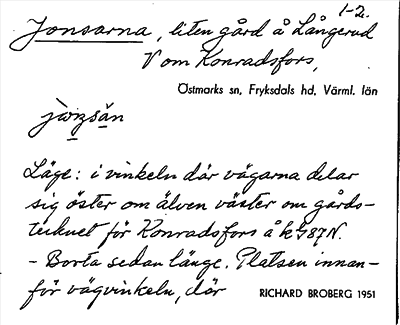 1-2.
Jonsarna, liten gård å Långerud
V om Konradsfors,
Östmarks sn, Fryksdals hd, Värml. län
Läge: i vinkeln där vägarna delar
sig öster om älven väster om gårds-
tecknet för Konradsfors å k 787 N.
- Borta sedan länge. Platsen innan-
för vägvinkeln, där
RICHARD BROBERG 1951